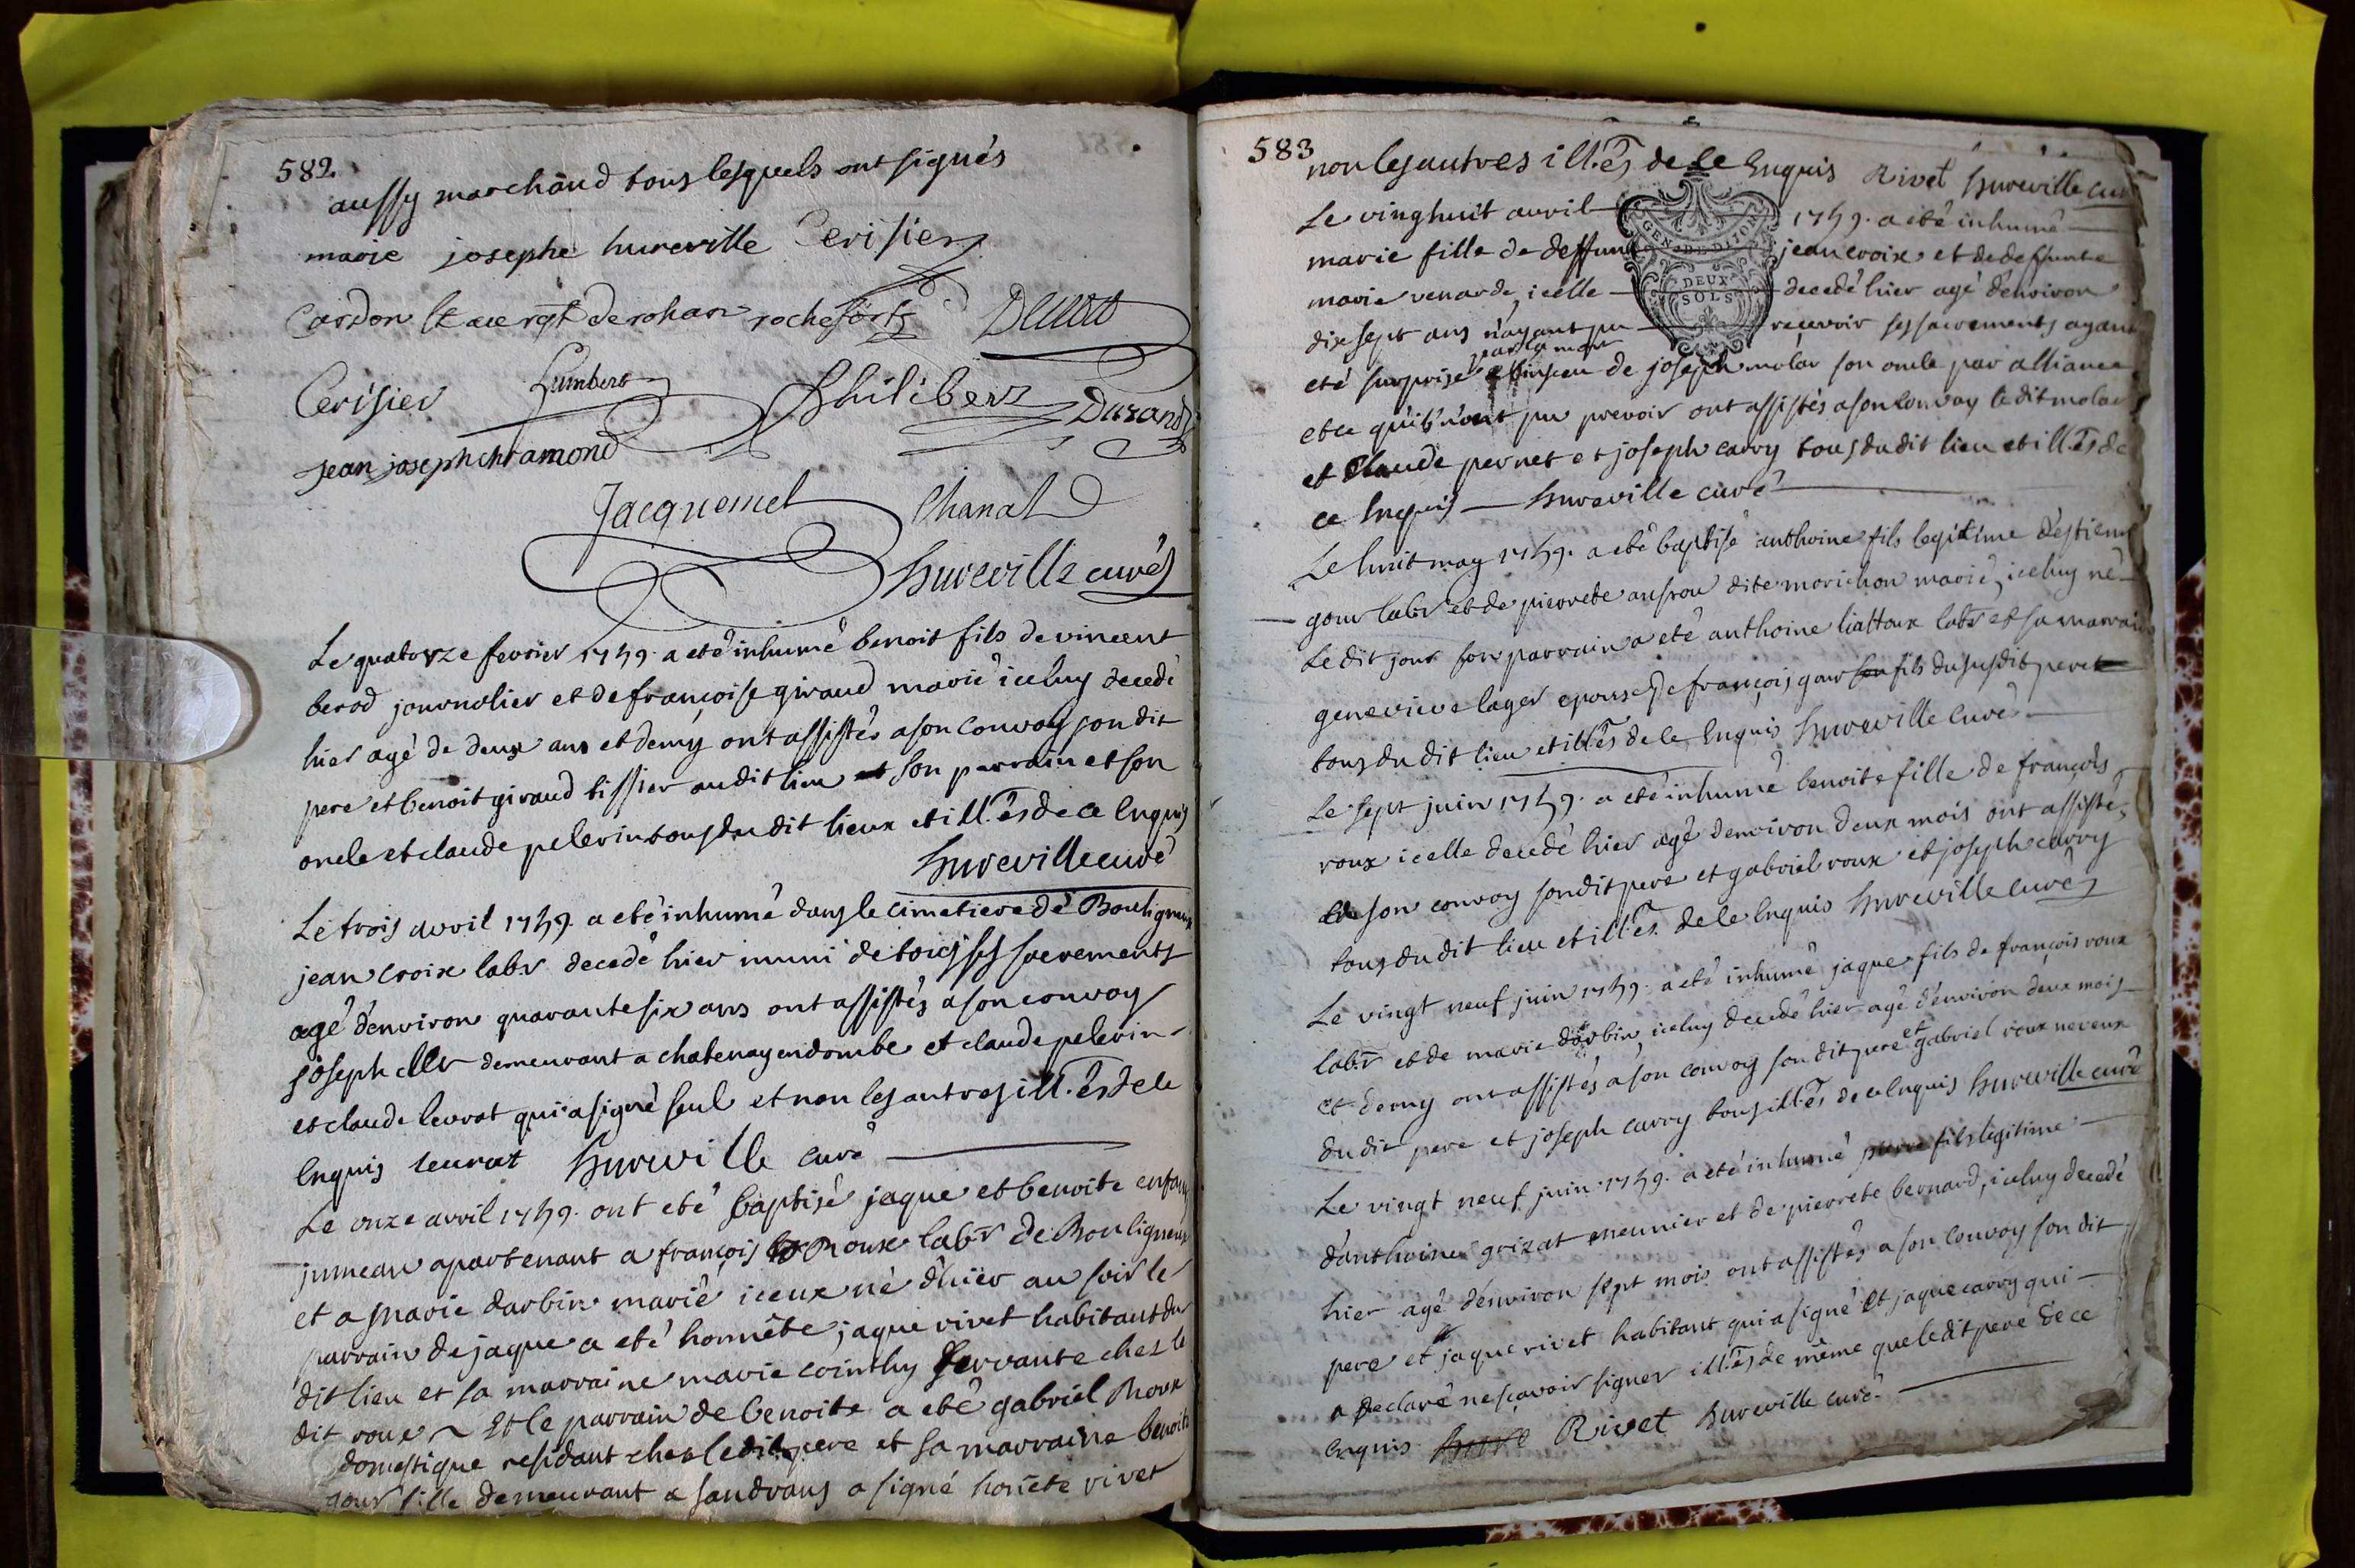 582.
aussy marchand tous lesquels ont signés
marie josephe hureville Cerisier
Cardon rochefort
Cerisier humbert Philibert Durand
jean joseph chramond
Jacquemet Chanal
hureville curé
Le quatorze fevrier 1749. a eté inhumé benoit fils de vincent
berod journolier et de françoise giraud marié iceluy decedé
hier agé de deux ans et demy ont assistés a son convoy son dit
pere et benoit giraud tissier au dit lieu son parrain et son
oncle et claude pelerin tous du dit lieux et ill.és de ce enquis
hureville curé
Le trois avril 1749. a eté inhumé dans le cimetiere de Bouligneux
jean croix labr decedé hier muni de tous ses sacrements
agé d'environ quarante six ans ont assistés a son convoy
joseph demeurant a chatenay en dombe et claude pelerin
et claude leurat qui a signé seul et non les autres ill.és de ce
enquis leurat hureville curé
Le onze avril 1749. ont eté baptisé jaque et benoite enfans
jumeau apartenant a françois Roux labr de Bouligneux
et a marie darbin marié iceux né d'hier au soir le
parrain de jaque a eté honnête jaque rivet habitant du
dit lieu et sa marraine marie cointhy servante ches le
dit roux Et le parrain de benoite a eté gabriel Roux
domestique residant ches le dit pere et sa marraine benoite
gour fille demeurant a sandrans a signé honête rivet
583
non les autres ill.és de ce Enquis Rivet hureville curé
Le vinghuit avril 1749. a eté inhumé
marie fille de deffunt jean croix et de defunte
marie venarde, icelle decedé hier agé d'environ
dix sept ans n'ayant pu recevoir ses sacrements ayant
GEN. DE DIJON
DEUX
SOLS
par la mort
eté surprise a l'insceu de joseph molar son oncle par alliance
et ce qu'ils n'ont pu prevoir ont assistés a son convoy le dit molar
et Claude pernet et joseph carry tous du dit lieu et ill.és de
ce enquis hureville curé
Le huit may 1749. a eté baptisé anthoine fils legitime d'estienne
gour labr et de pierrete dite morichon marié, iceluy né
le dit jour son parrain a eté anthoine liattoux labr et sa marraine
genevieve lager epouse de françois gour fils du susdit pere
tous du dit lieu et ill.és de ce Enquis hureville curé
Le sept juin 1749. a eté inhumé benoite fille de françois
roux icelle decedé hier agé d'environ deux mois ont assistés
a son convoy son dit pere et gabriel roux et joseph carry
tous du dit lieu et ill.és de ce enquis hureville curé
Le vingt neuf juin 1749. a eté inhumé jaque fils de françois roux
labr et de marie darbin, iceluy decedé hier agé d'environ deux mois
et demy ont assistés a son convoy son dit pere et gabriel roux neveux
du dit pere et joseph carry tous ill.és de ce enquis hureville curé
Le vingt neuf juin 1749. a eté inhumé pierre fils legitime
d'anthoine grizat meunier et de pierrete bernard, iceluy decedé
hier agé d'environ sept mois ont assistés a son convoy son dit
pere et jaque rivet habitant qui a signé et jaque carry qui
a declaré ne sçavoir signer ill.és de même que le dit pere de ce
enquis Rivet hureville curé